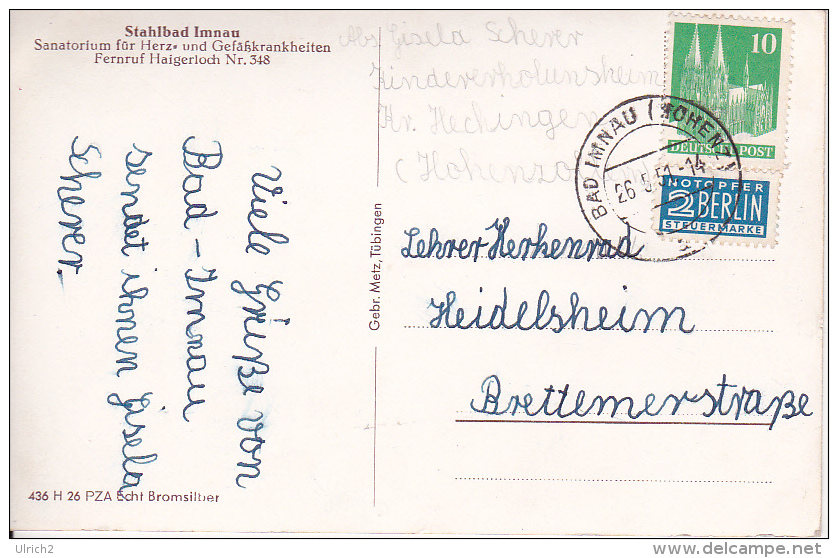 Stahlbad Imnau
Sanatorium für Herz- und Gefäßkrankheiten
Fernruf Haigerloch Nr. 348
Viele Grüße von
Bad-Imnau
sendet ihnen Gisela
Scherer.
436 H 26 PZA Echt Bromsilber
Gebr. Metz, Tübingen
Abs. Gisela Scherer
Kindererholunsheim
Kr. Hechingen
(Hohenzollern
10
DEUTSCHE POST
NOTOPFER
2 BERLIN
STEUERMARKE
BAD IMNAU (HOHENZ)
26.5.51-14
Lehrer Herkenrad
Heidelsheim
Brettemerstraße
Ulrich2
www.delcampe.net